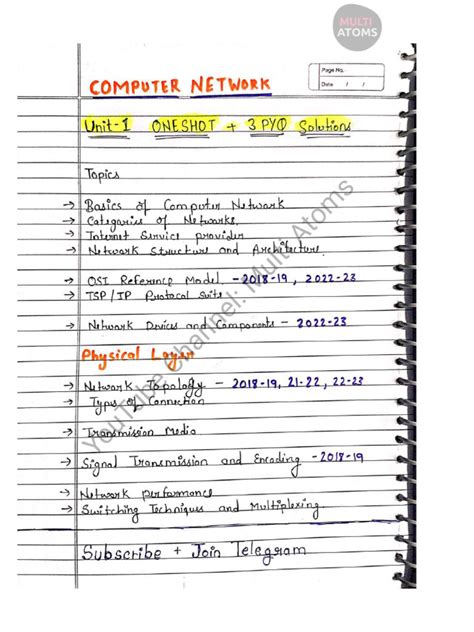 MULTI
ATOMS
Page No.
Date / /
COMPUTER NETWORK
Unit-1 ONESHOT + 3 PYQ Solutions
Topics
→ Basics of Computer Network
→ Categories of Networks.
→ Internet Service provider
→ Network Structure and Architecture.
→ OSI Reference Model - 2018-19, 2022-23
→ TSP / IP Protocol Suite
→ Network Devices and Components - 2022-23
Physical Layer
→ Network Topology - 2018-19, 21-22, 22-23
→ Types of Connection
→ Transmission Media
→ Signal Transmission and Encoding - 2018-19
→ Network performance
→ Switching Techniques and Multiplexing.
Subscribe + Join Telegram
YouTube Channel: Multi Atoms